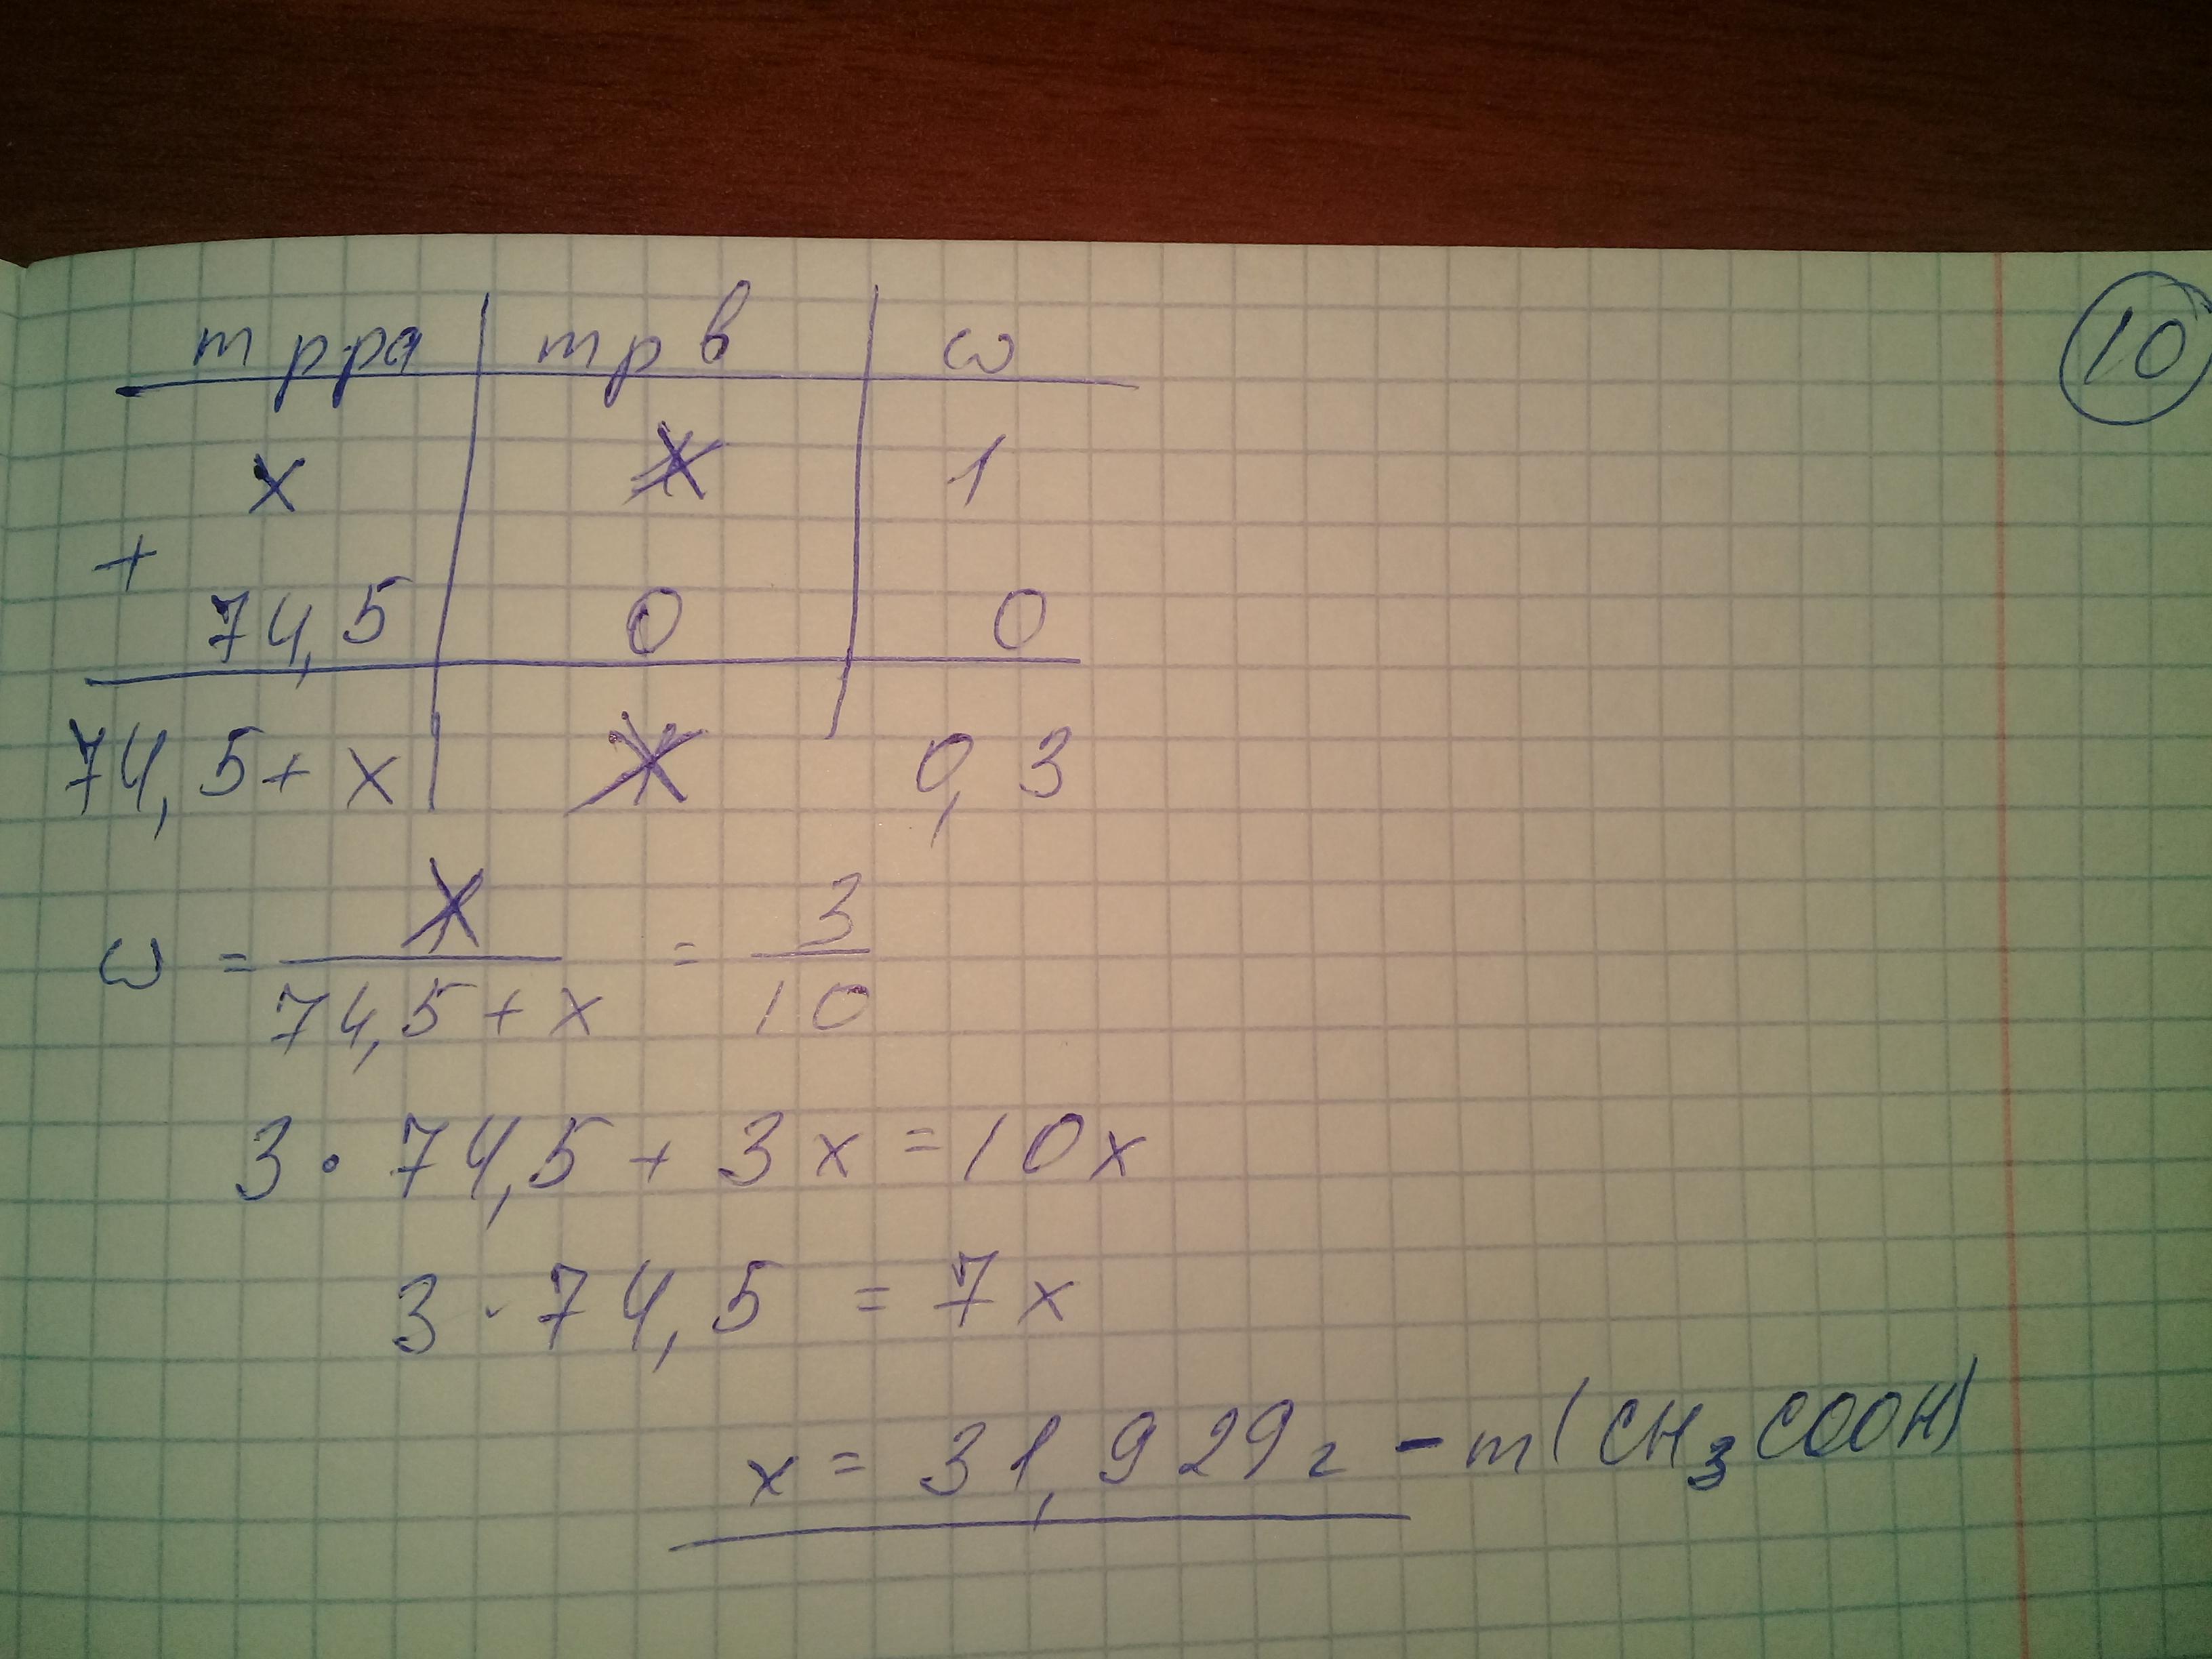 m р-ра | m р в | ω
10
x | x | 1
+
74,5 | 0 | 0
74,5 + x | x 0,3
ω = x / 74,5 + x = 3 / 10
3 · 74,5 + 3x = 10x
3 · 74,5 = 7x
x = 31,929 г - m(CH₃COOH)